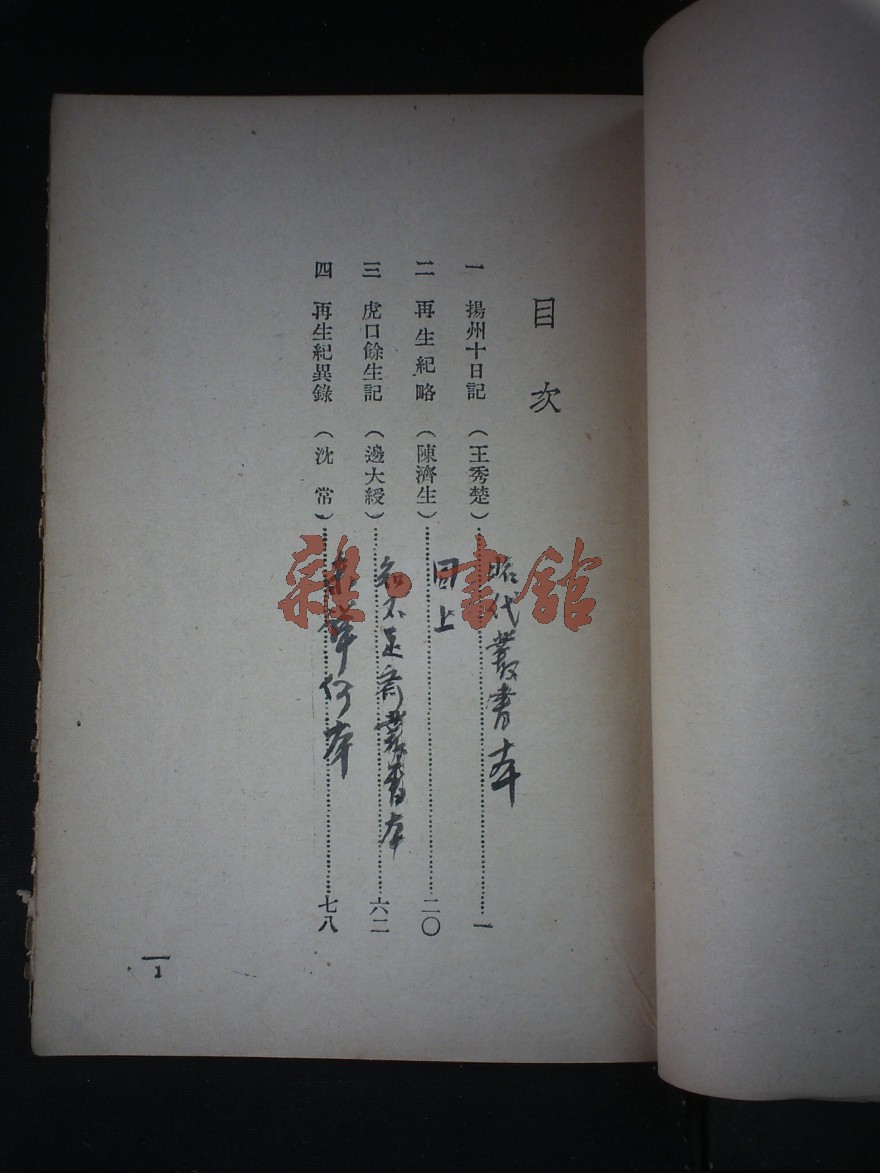 目次
一 揚州十日記 (王秀楚)……一
昭代叢書本
二 再生紀略 (陳濟生)……二〇
同上
三 虎口餘生記 (邊大綬)……六二
知不足齋叢書本
四 再生紀異錄 (沈常)……七八
何本
1
雜·書館